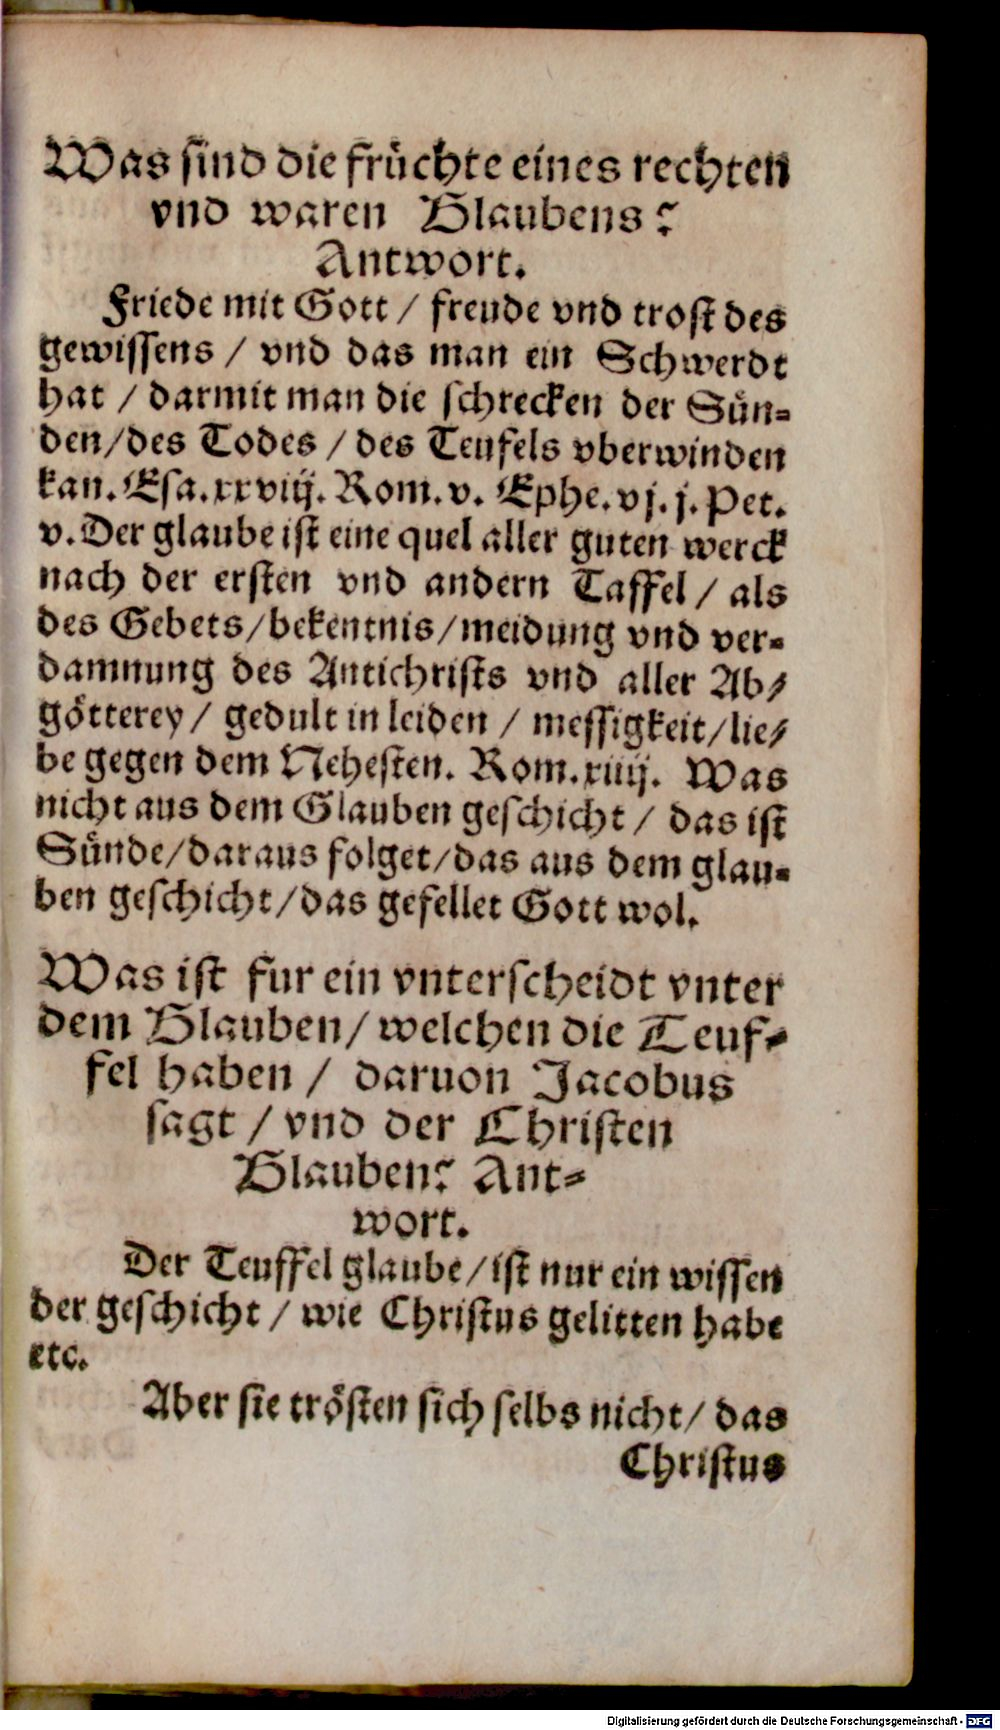 Was sind die früchte eines rechten
vnd waren Glaubens?
Antwort.
Friede mit Gott / freude vnd trost des
gewissens / vnd das man ein Schwerdt
hat / darmit man die schrecken der Sün-
den/des Todes / des Teufels vberwinden
kan. Esa.xxviij. Rom.v. Ephe.vj.j.Pet.
v.Der glaube ist eine quel aller guten werck
nach der ersten vnd andern Taffel / als
des Gebets/bekentnis/meidung vnd ver-
damnung des Antichrists vnd aller Ab-
götterey / gedult in leiden / messigkeit/lie-
be gegen dem Nehesten. Rom.xiiij. Was
nicht aus dem Glauben geschicht / das ist
Sünde/daraus folget/das aus dem glau-
ben geschicht/das gefellet Gott wol.
Was ist fur ein vnterscheidt vnter
dem Glauben/ welchen die Teuf-
fel haben / daruon Jacobus
sagt / vnd der Christen
Glauben? Ant-
wort.
Der Teuffel glaube/ist nur ein wissen
der geschicht / wie Christus gelitten habe
etc.
Aber sie trösten sich selbs nicht/ das
Christus
Digitalisierung gefördert durch die Deutsche Forschungsgemeinschaft - DFG